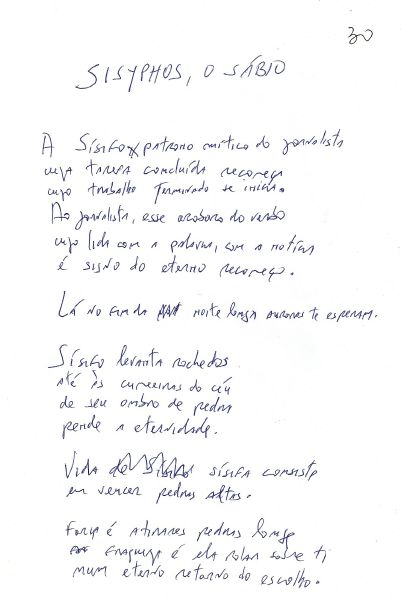 30
SISYPHOS, O SÁBIO
A Sísifo patrono mítico do jornalista
cuja tarefa concluída recomeça
cujo trabalho terminado se inicia.
Ao jornalista, esse oroboro do verbo
cuja lida com a palavra, com a notícia
é signo do eterno recomeço.
Lá no fim da noite longa auroras te esperam.
Sísifo levanta rochedos
até às cumeeiras do céu
de seu ombro de pedra
pende a eternidade.
Vida sísifa consiste
em vencer pedras altas.
Força é atirares pedras longe
fraqueza é ela rolar sobre ti
num eterno retorno do escolho.